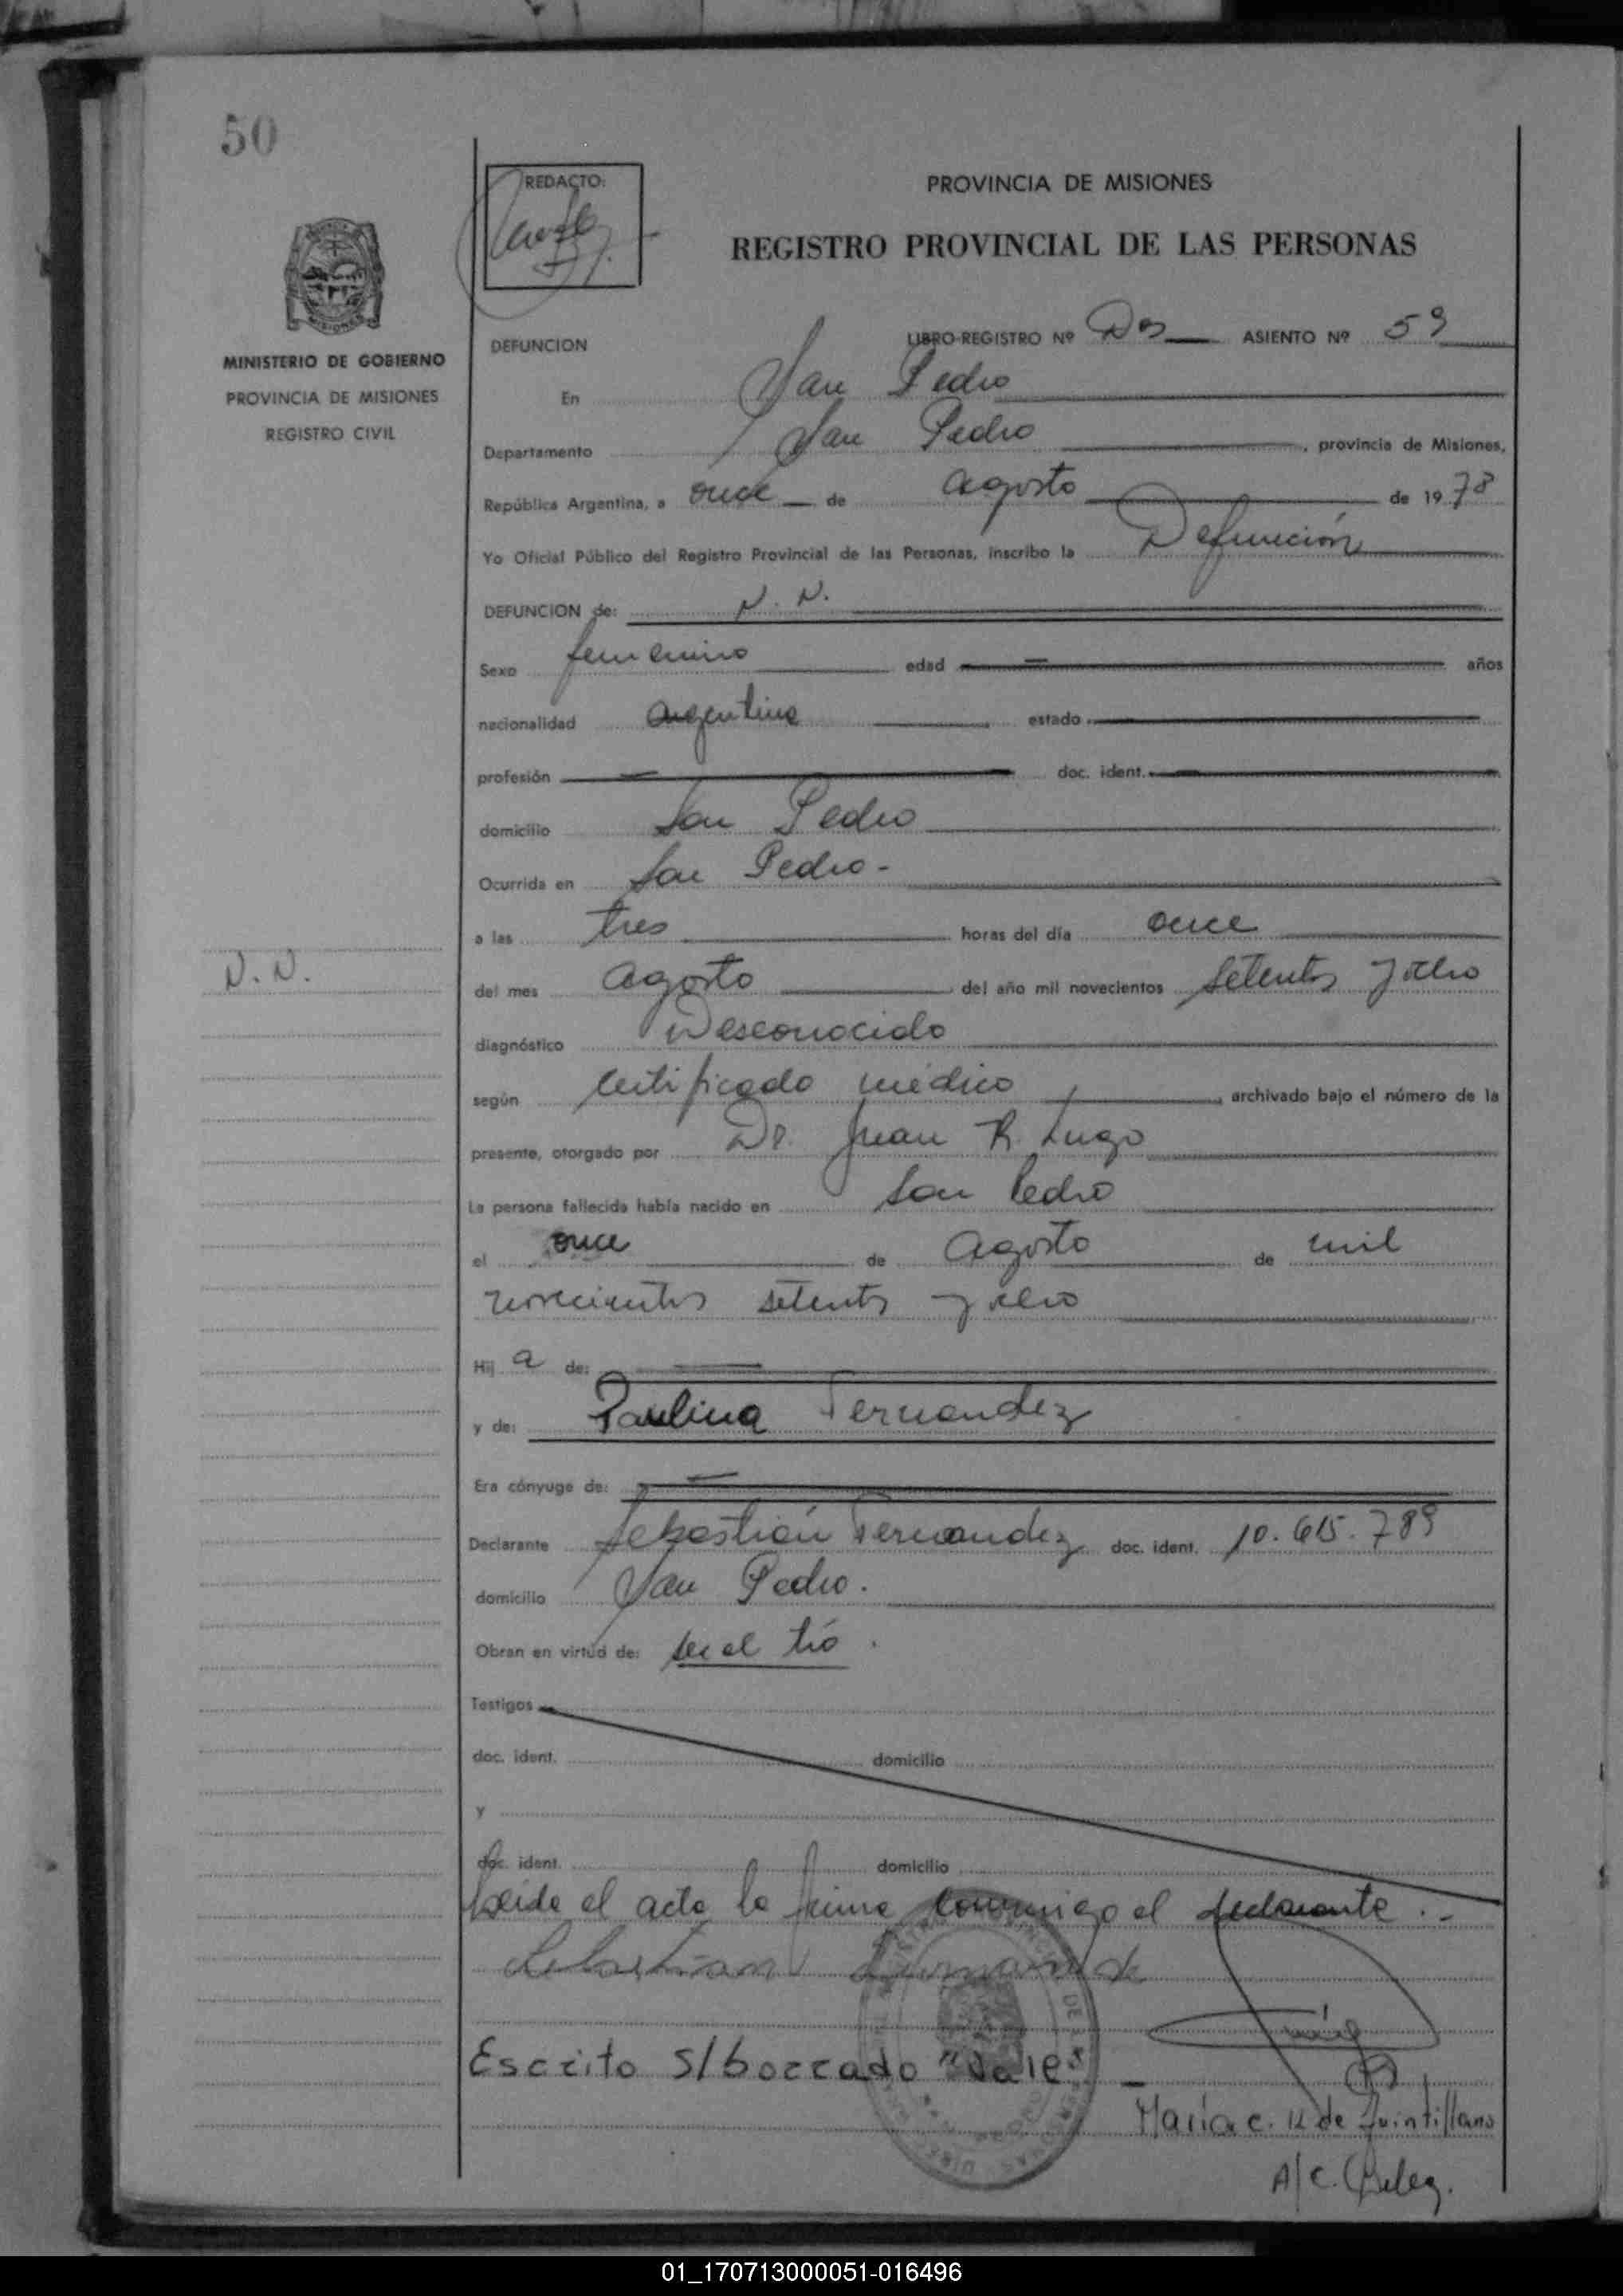 50
REDACTO:
PROVINCIA DE MISIONES
REGISTRO PROVINCIAL DE LAS PERSONAS
MINISTERIO DE GOBIERNO
PROVINCIA DE MISIONES
REGISTRO CIVIL
DEFUNCION
LIBRO-REGISTRO Nº Dos ASIENTO Nº 59
En San Pedro
Departamento San Pedro, provincia de Misiones,
República Argentina, a once de agosto de 1978
Yo Oficial Público del Registro Provincial de las Personas, inscribo la Defunción
DEFUNCION de: N. N.
Sexo femenino edad años
nacionalidad argentina estado
profesión doc. ident.
domicilio San Pedro
Ocurrida en San Pedro-
a las tres horas del día once
N. N.
del mes agosto del año mil novecientos setenta y ocho
diagnóstico Desconocido
según certificado médico, archivado bajo el número de la
presente, otorgado por Dr. Juan R. Lugo
La persona fallecida había nacido en San Pedro
el once de agosto de mil
novecientos setenta y ocho
Hij a de:
y de: Paulina Fernandez
Era cónyuge de:
Declarante Sebastián Fernandez doc. ident. 10.615.789
domicilio San Pedro.
Obran en virtud de: ser el tío.
Testigos
doc. ident. domicilio
y
doc. ident. domicilio
Leída el acta la firma conmigo el declarante.-
Sebastian
Escrito s/borrado "Vale"
Maria C. K de Quintillano
A/C. Deleg.
01_170713000051-016496